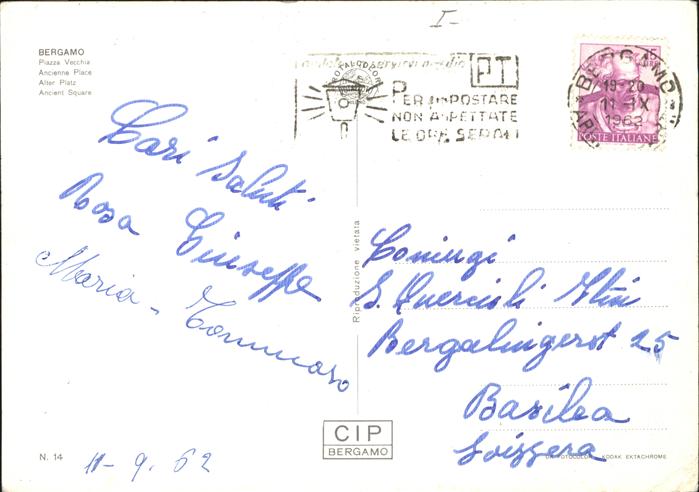 I-
BERGAMO
Piazza Vecchia
Ancienne Place
Alter Platz
Ancient Square
PT
PER IMPOSTARE
NON ASPETTATE
LE ORE SERALI
BERGAMO
19-20
11·IX
1962
POSTE ITALIANE
Cari saluti
Rosa Giuseppe
Maria - Tommaso
Riproduzione vietata
Coniugi
S. Quercioli Itini
Bergalingerst 25
Basilea
Svizzera
CIP
BERGAMO
N. 14
11-9.62
DA FOTOCOLOR KODAK EKTACHROME